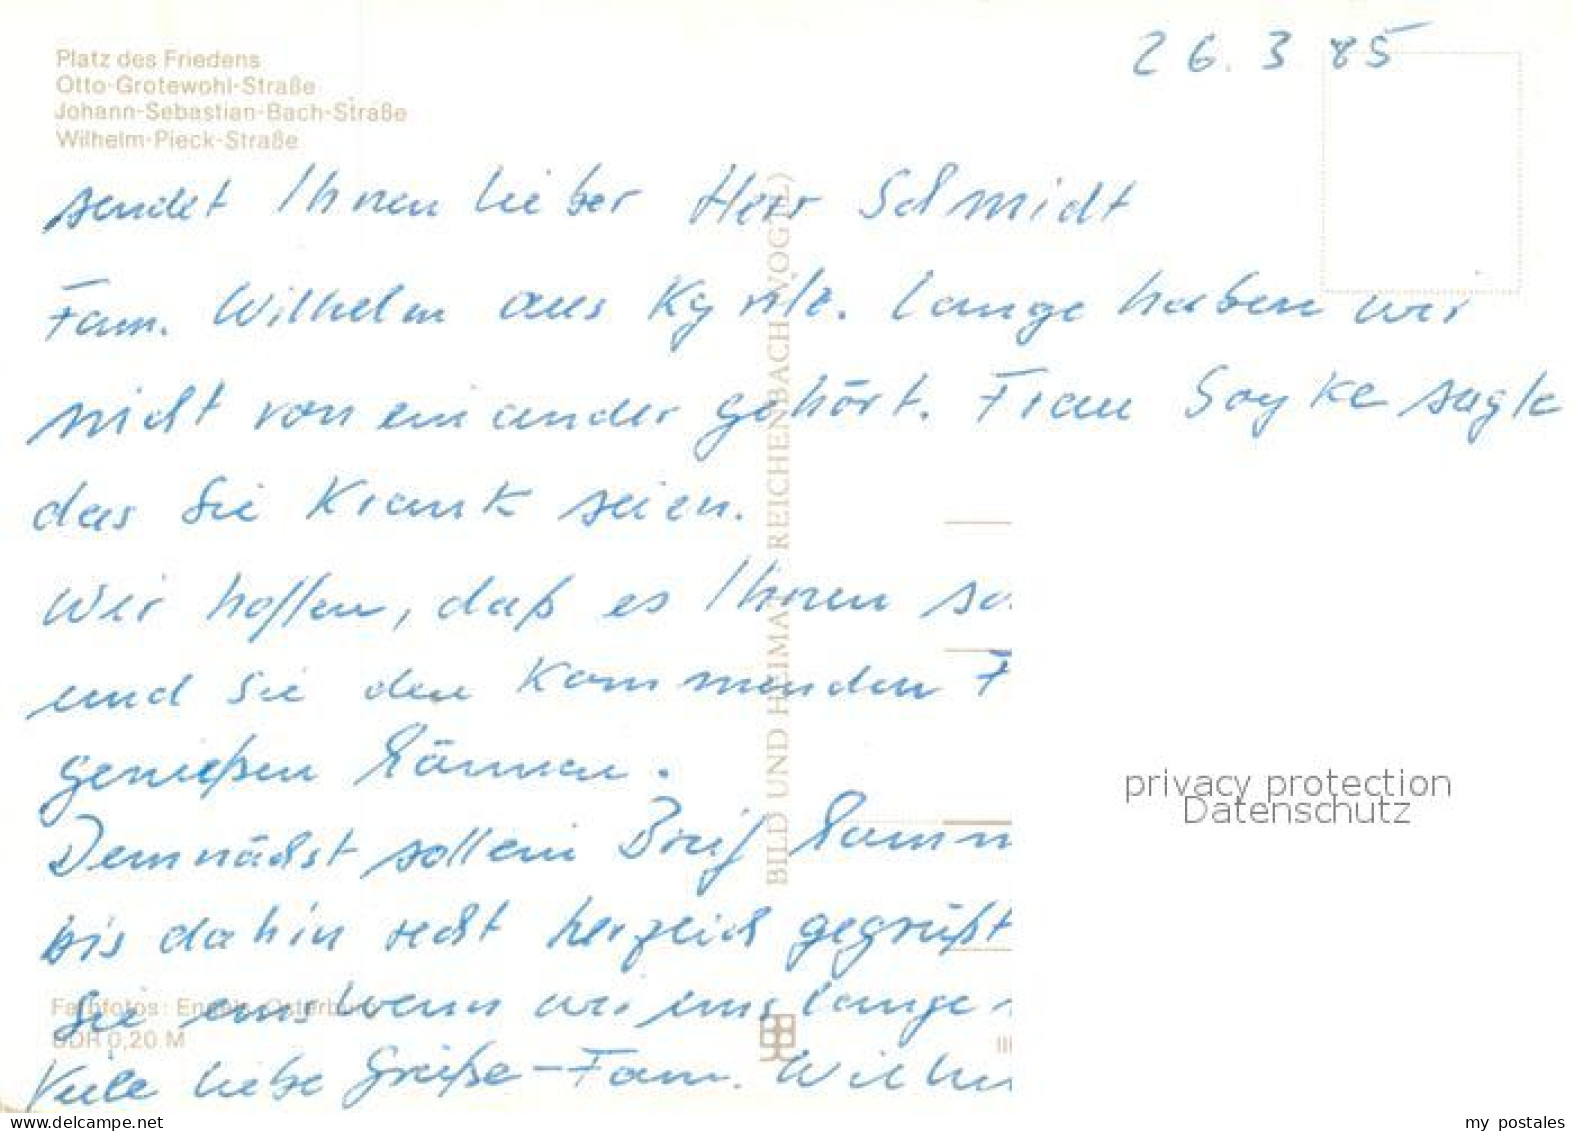 Platz des Friedens
Otto-Grotewohl-Straße
Johann-Sebastian-Bach-Straße
Wilhelm-Pieck-Straße
26. 3 85
sendet Ihnen lieber Herr Schmidt
Fam. Wilhelm aus Kyritz. Lange haben wir
nicht voneinander gehört. Frau Soyke sagte
das Sie Krank seien.
Wir hoffen, daß es Ihnen so
und Sie den Kommenden F
genießen können.
Demnächst soll ein Brief komm
bis dahin recht herzlich gegrüßt
Sie uns wenn wir uns lange
Viele liebe Grüße - Fam. Wilhel
BILD UND HEIMAT REICHENBACH (VOGTL)
Farbfotos: Osterburg
DDR 0,20 M
privacy protection
Datenschutz
my postales
www.delcampe.net